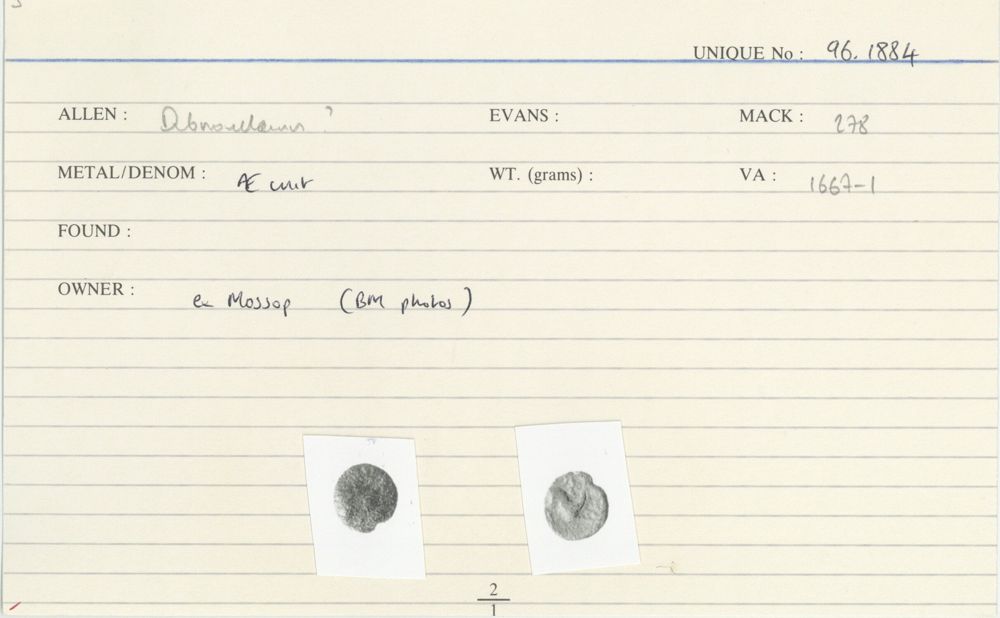 UNIQUE No : 96.1884
ALLEN : Dubnovellaunus ? EVANS : MACK : 278
METAL/DENOM : Æ unit WT. (grams) : VA : 1667-1
FOUND :
OWNER : ex Mossop (BM photos)
2
1